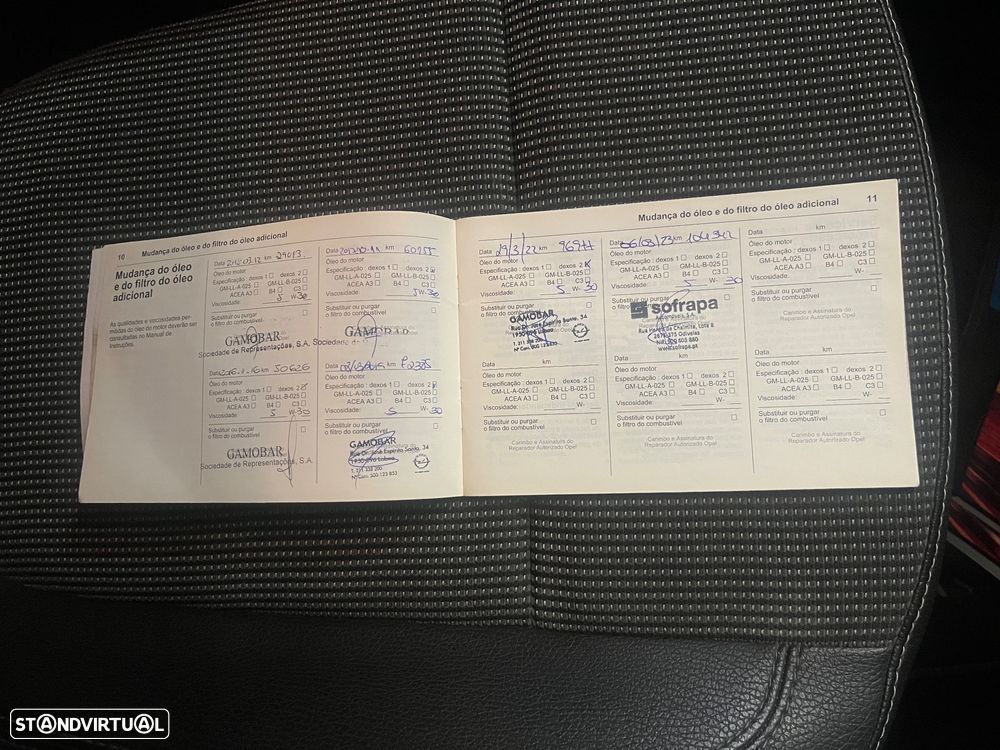 10 Mudança do óleo e do filtro do óleo adicional
Mudança do óleo
e do filtro do óleo
adicional
As qualidades e viscosidades per-
mitidas do óleo do motor deverão ser
consultadas no Manual de
Instruções.
Data km 29013
Óleo do motor
Especificação: dexos 1 dexos 2
GM-LL-A-025 GM-LL-B-025
ACEA A3 B4 C3
Viscosidade: 5 W-30
Substituir ou purgar
o filtro do combustível
GAMOBAR
Sociedade de Representações, S.A.
Data km 50626
Óleo do motor
Especificação: dexos 1 dexos 2
GM-LL-A-025 GM-LL-B-025
ACEA A3 B4 C3
Viscosidade: 5 W-30
Substituir ou purgar
o filtro do combustível
GAMOBAR
Sociedade de Representações, S.A.
Data km 60955
Óleo do motor
Especificação: dexos 1 dexos 2
GM-LL-A-025 GM-LL-B-025
ACEA A3 B4 C3
Viscosidade: 5 W-30
Substituir ou purgar
o filtro do combustível
GAMOBAR
Sociedade de
Data km
Óleo do motor
Especificação: dexos 1 dexos 2
GM-LL-A-025 GM-LL-B-025
ACEA A3 B4 C3
Viscosidade: 5 W- 30
Substituir ou purgar
o filtro do combustível
GAMOBAR
Rua Dr. José Espírito Santo, 34
1950-096 Lisboa
T. 211 338 200
Nº Cont. 500 123 853
Mudança do óleo e do filtro do óleo adicional 11
Data 29/3/22 km
Óleo do motor
Especificação: dexos 1 dexos 2
GM-LL-A-025 GM-LL-B-025
ACEA A3 B4 C3
Viscosidade: 5 W- 30
Substituir ou purgar
GAMOBAR
Rua Dr. José Espírito Santo, 34
1950-096 Lisboa
T. 211 338 200
Nº Cont. 500 123 853
Data km
Óleo do motor
Especificação: dexos 1 dexos 2
GM-LL-A-025 GM-LL-B-025
ACEA A3 B4 C3
Viscosidade:
Substituir ou purgar
o filtro do combustível
Data km
Óleo do motor
Especificação: dexos 1 dexos 2
GM-LL-A-025 GM-LL-B-025
ACEA A3 B4 C3
Viscosidade: 5 W- 30
Substituir ou purgar
sofrapa
2675-375 Odivelas
www.sofrapa.pt
Data km
Óleo do motor
Especificação: dexos 1 dexos 2
GM-LL-A-025 GM-LL-B-025
ACEA A3 B4 C3
Viscosidade: W-
Substituir ou purgar
o filtro do combustível
Carimbo e Assinatura do
Reparador Autorizado Opel
Data km
Óleo do motor
Especificação: dexos 1 dexos 2
GM-LL-A-025 GM-LL-B-025
ACEA A3 B4 C3
Viscosidade: W-
Substituir ou purgar
o filtro do combustível
Carimbo e Assinatura do
Reparador Autorizado Opel
Data km
Óleo do motor
Especificação: dexos 1 dexos 2
GM-LL-A-025 GM-LL-B-025
ACEA A3 B4 C3
Viscosidade: W-
Substituir ou purgar
o filtro do combustível
Carimbo e Assinatura do
Reparador Autorizado Opel
STANDVIRTUAL